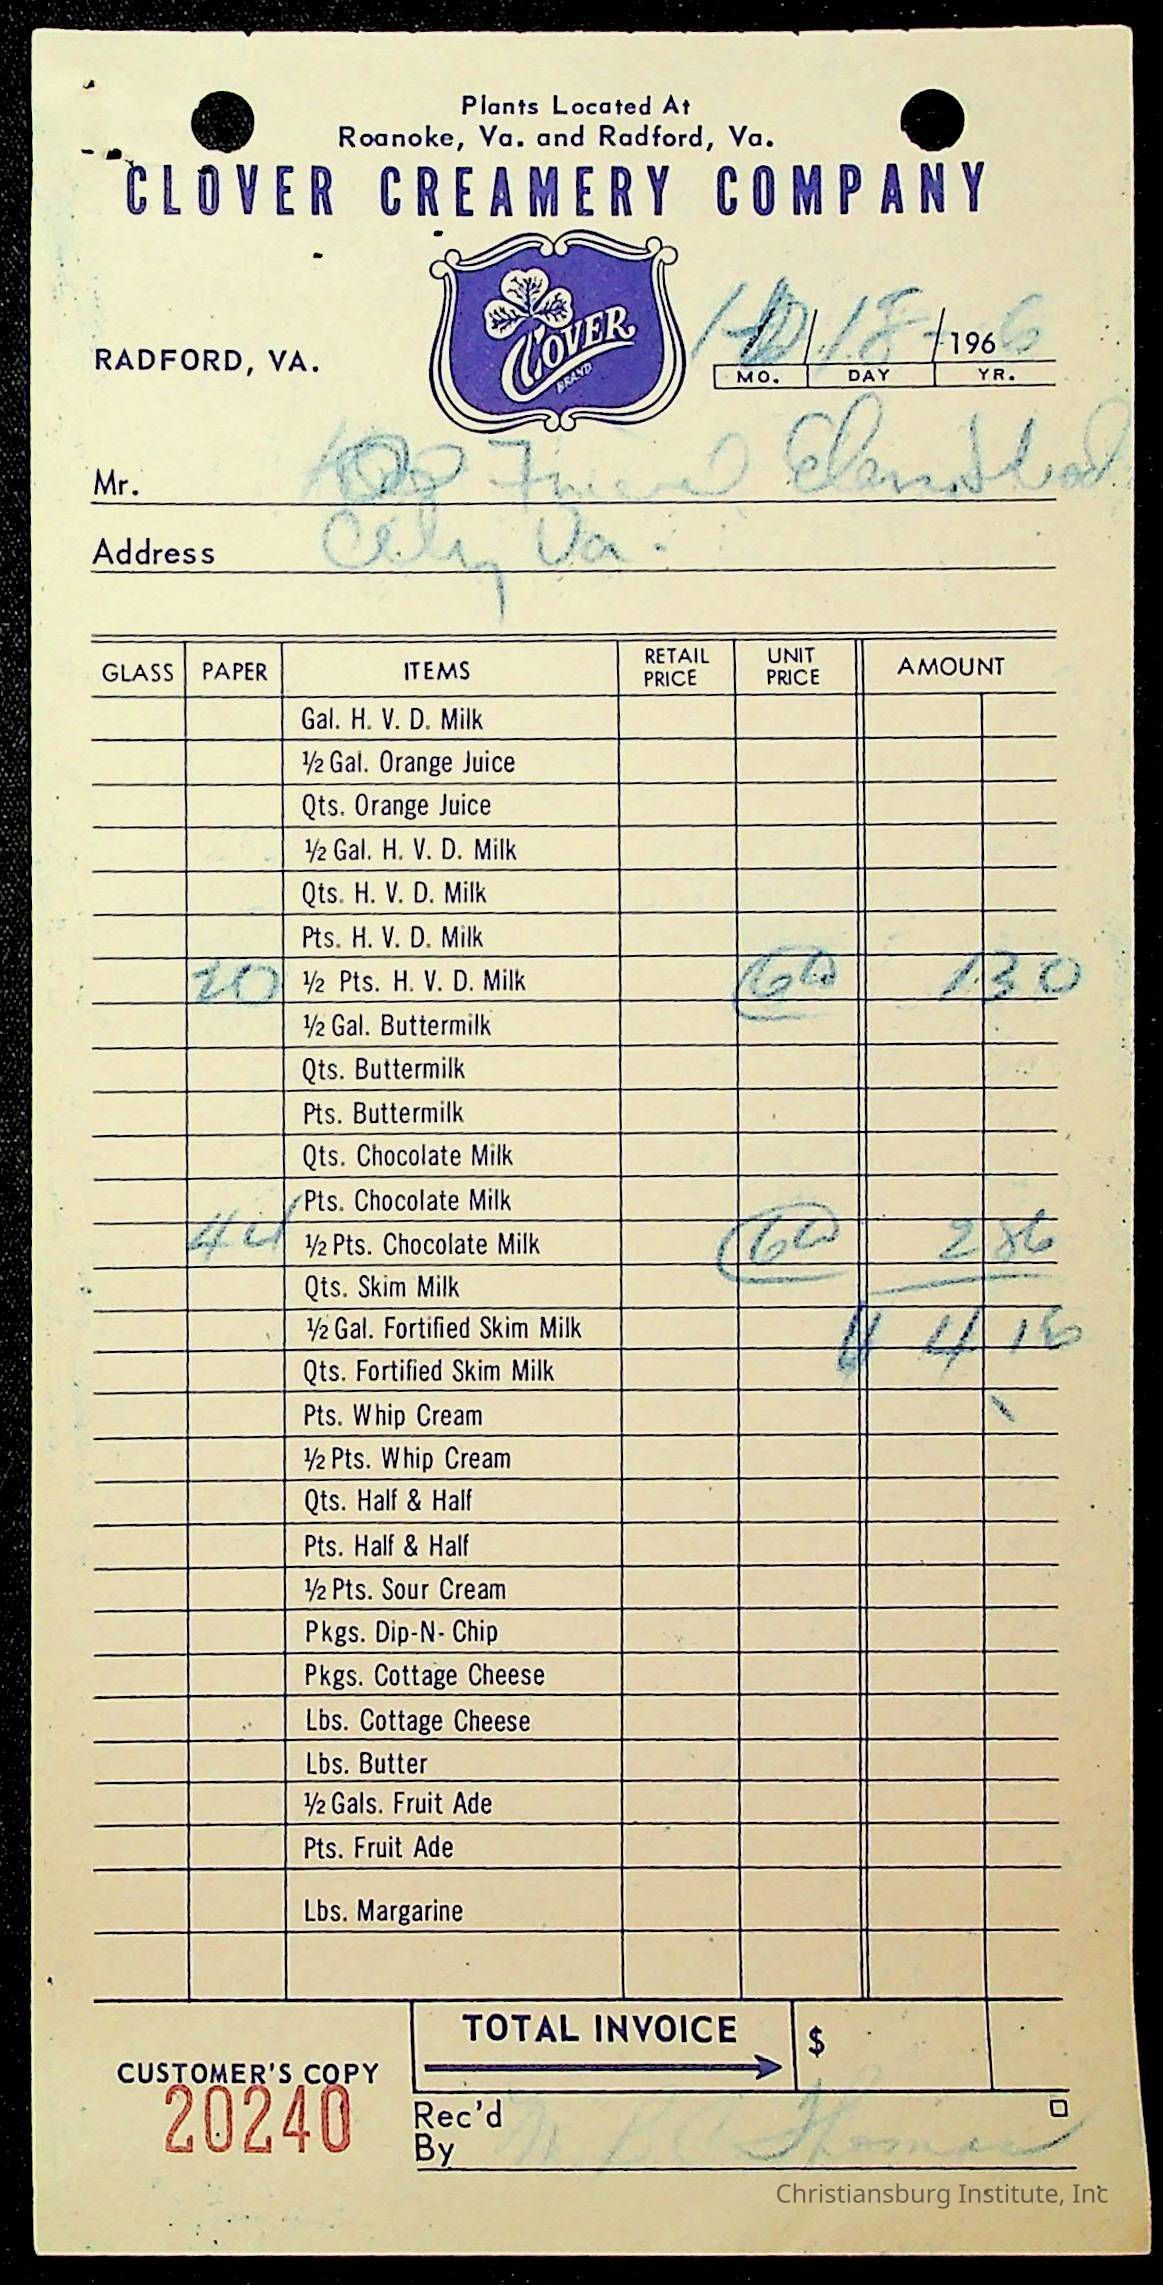 Plants Located At
Roanoke, Va. and Radford, Va.
CLOVER CREAMERY COMPANY
CLOVER
BRAND
RADFORD, VA.
18 - 1966
MO. DAY YR.
Mr. Friend
Address City Va.
GLASS PAPER ITEMS RETAIL PRICE UNIT PRICE AMOUNT
Gal. H. V. D. Milk
½ Gal. Orange Juice
Qts. Orange Juice
½ Gal. H. V. D. Milk
Qts. H. V. D. Milk
Pts. H. V. D. Milk
20 ½ Pts. H. V. D. Milk 1 30
½ Gal. Buttermilk
Qts. Buttermilk
Pts. Buttermilk
Qts. Chocolate Milk
Pts. Chocolate Milk
44 ½ Pts. Chocolate Milk 2 86
Qts. Skim Milk
½ Gal. Fortified Skim Milk 4 16
Qts. Fortified Skim Milk
Pts. Whip Cream
½ Pts. Whip Cream
Qts. Half & Half
Pts. Half & Half
½ Pts. Sour Cream
Pkgs. Dip-N-Chip
Pkgs. Cottage Cheese
Lbs. Cottage Cheese
Lbs. Butter
½ Gals. Fruit Ade
Pts. Fruit Ade
Lbs. Margarine
TOTAL INVOICE $
CUSTOMER'S COPY
20240
Rec'd By Thomas
Christiansburg Institute, Inc